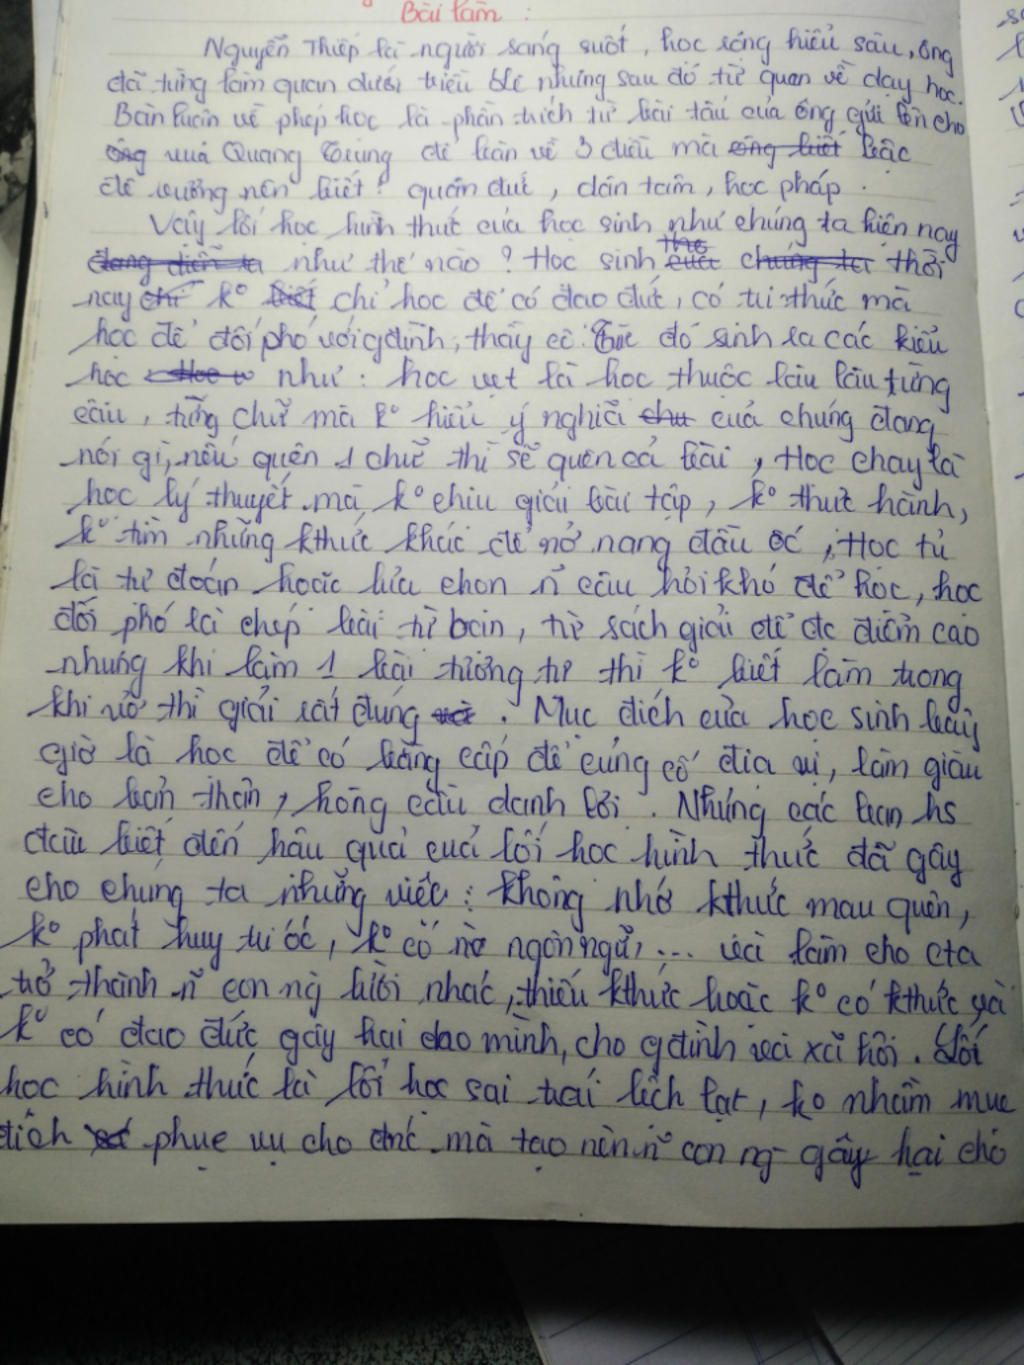 Bài làm :
Nguyễn Thiếp là người sáng suốt, học rộng hiểu sâu, ông
đã từng làm quan dưới triều Lê nhưng sau đó từ quan về dạy học.
Bàn luận về phép học là phần trích từ bài tấu của ông gửi lên cho
vua Quang Trung để bàn về 3 điều mà ông biết bậc
đế vương nên biết: quân đức, dân tâm, học pháp.
Vậy lối học hình thức của học sinh như chúng ta hiện nay
đang diễn ta như thế nào? Học sinh của chúng ta thời
nay chỉ k° biết chỉ học để có đạo đức, có tri thức mà
học để đối phó với gđình, thầy cô. Từ đó sinh ra các kiểu
học như: học vẹt là học thuộc làu làu từng
câu, từng chữ mà k° hiểu ý nghĩa của chúng đang
nói gì, nếu quên 1 chữ thì sẽ quên cả bài, Học chay là
học lý thuyết mà k° chịu giải bài tập, k° thực hành,
k° tìm những kthức khác để nở nang đầu óc, Học tủ
là tự đoán hoặc lựa chọn ~ câu hỏi khó để học, học
đối phó là chép bài từ bạn, từ sách giải để đc điểm cao
nhưng khi làm 1 bài tương tự thì k° biết làm trong
khi vở thì giải rất đúng và. Mục đích của học sinh bây
giờ là học để có bằng cấp để củng cố địa vị, làm giàu
cho bản thân, hòng cầu danh lợi. Nhưng các bạn hs
đâu biết đến hậu quả của lối học hình thức đã gây
cho chúng ta những việc: không nhớ kthức mau quên,
k° phát huy trí óc, k° có ngôn ngữ, ... và làm cho cta
trở thành ~ con ng lười nhác, thiếu kthức hoặc k° có kthức và
k° có đạo đức gây hại cho mình, cho gđình và xã hội. Lối
học hình thức là lối học sai trái lệch lạc, ko nhằm mục
đích phục vụ cho mà tạo nên ~ con ng gây hại cho